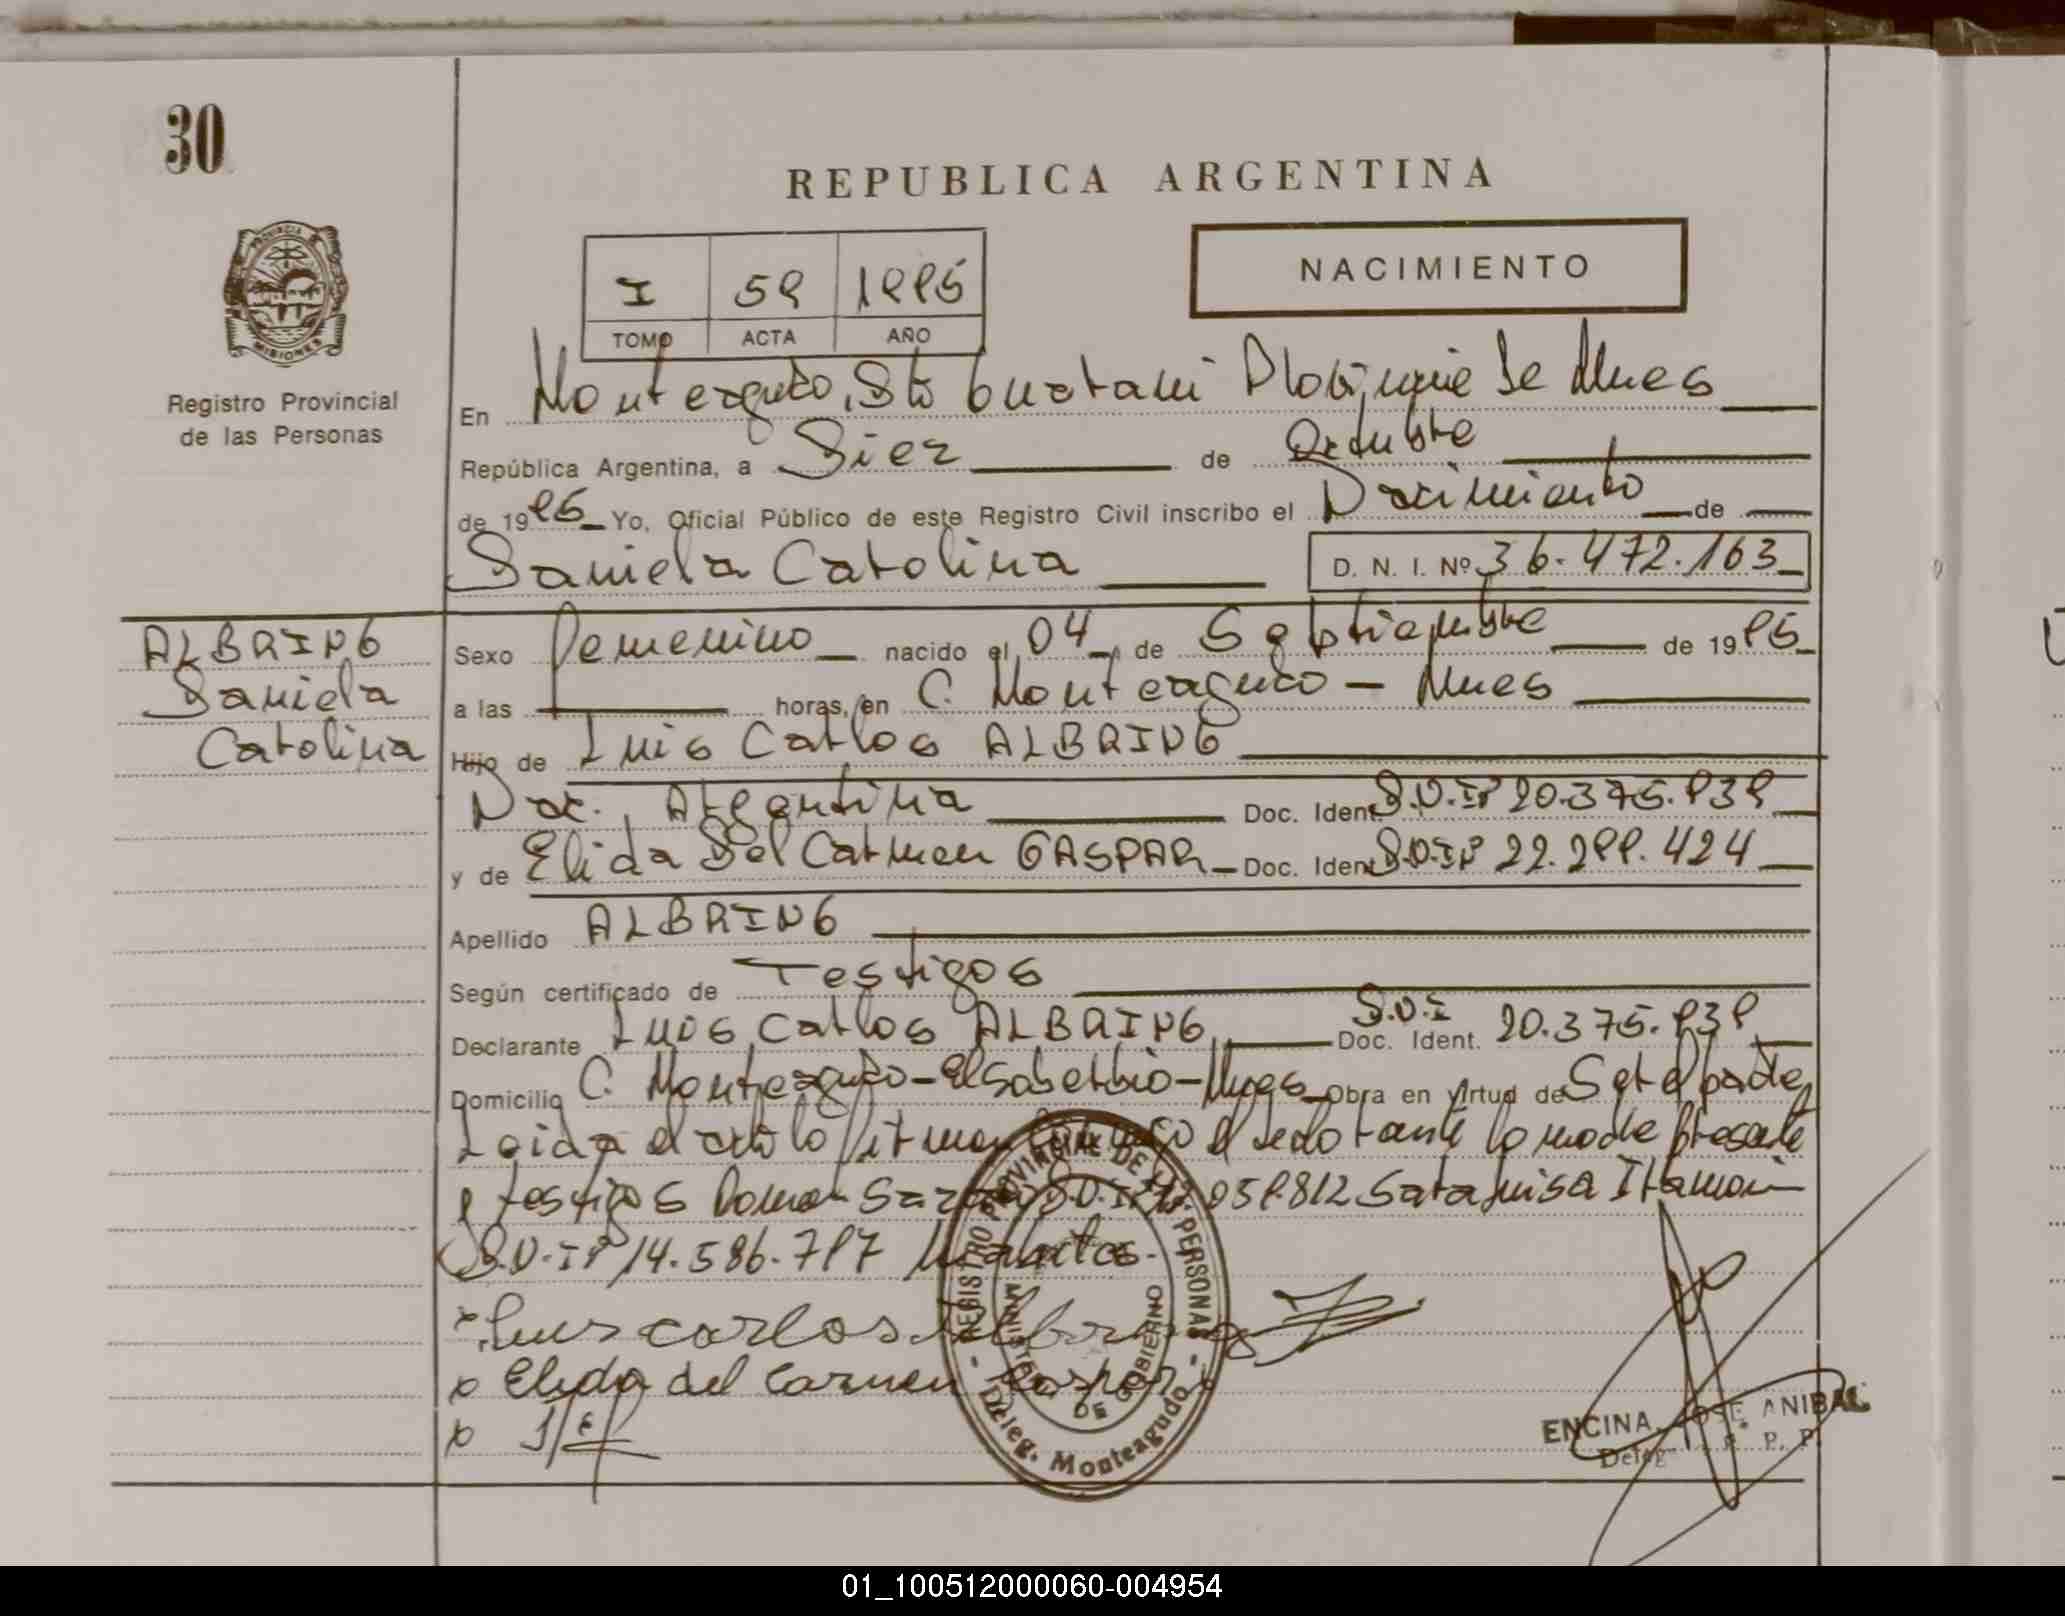 30
REPUBLICA ARGENTINA
NACIMIENTO
I 59 1995
TOMO ACTA AÑO
PROVINCIA DE MISIONES
Registro Provincial
de las Personas
En Monteagudo, Gto Guarani Provincia de Mnes
República Argentina, a Diez de Octubre
de 1995 Yo, Oficial Público de este Registro Civil inscribo el Nacimiento de
Daniela Carolina D. N. I. Nº 36.472.163
ALBRING
Daniela
Carolina
Sexo Femenino nacido el 04 de Septiembre de 1995
a las horas, en C. Monteagudo - Mnes
Hijo de Luis Carlos ALBRING
Nac. Argentina Doc. Ident. D.N.Iº 20.375.939
y de Elida del Carmen GASPAR Doc. Ident. D.N.Iº 22.299.424
Apellido ALBRING
Según certificado de Testigos
Declarante Luis Carlos ALBRING D.N.I Doc. Ident. 20.375.939
Domicilio C. Monteagudo - El Soberbio - Mnes Obra en virtud de Ser el padre
Leida el acta lo firman el declarante la madre presente
y testigos Ramon D.N.Iº 812 Itamar
D.N.Iº 14.586.797
x Luis carlos Albring
x Elida del Carmen Gaspar
x
REGISTRO PROVINCIAL DE LAS PERSONAS
MINISTERIO DE GOBIERNO
Deleg. Monteagudo
ENCINA, JOSE ANIBAL
Deleg. R. P. P.
01_100512000060-004954